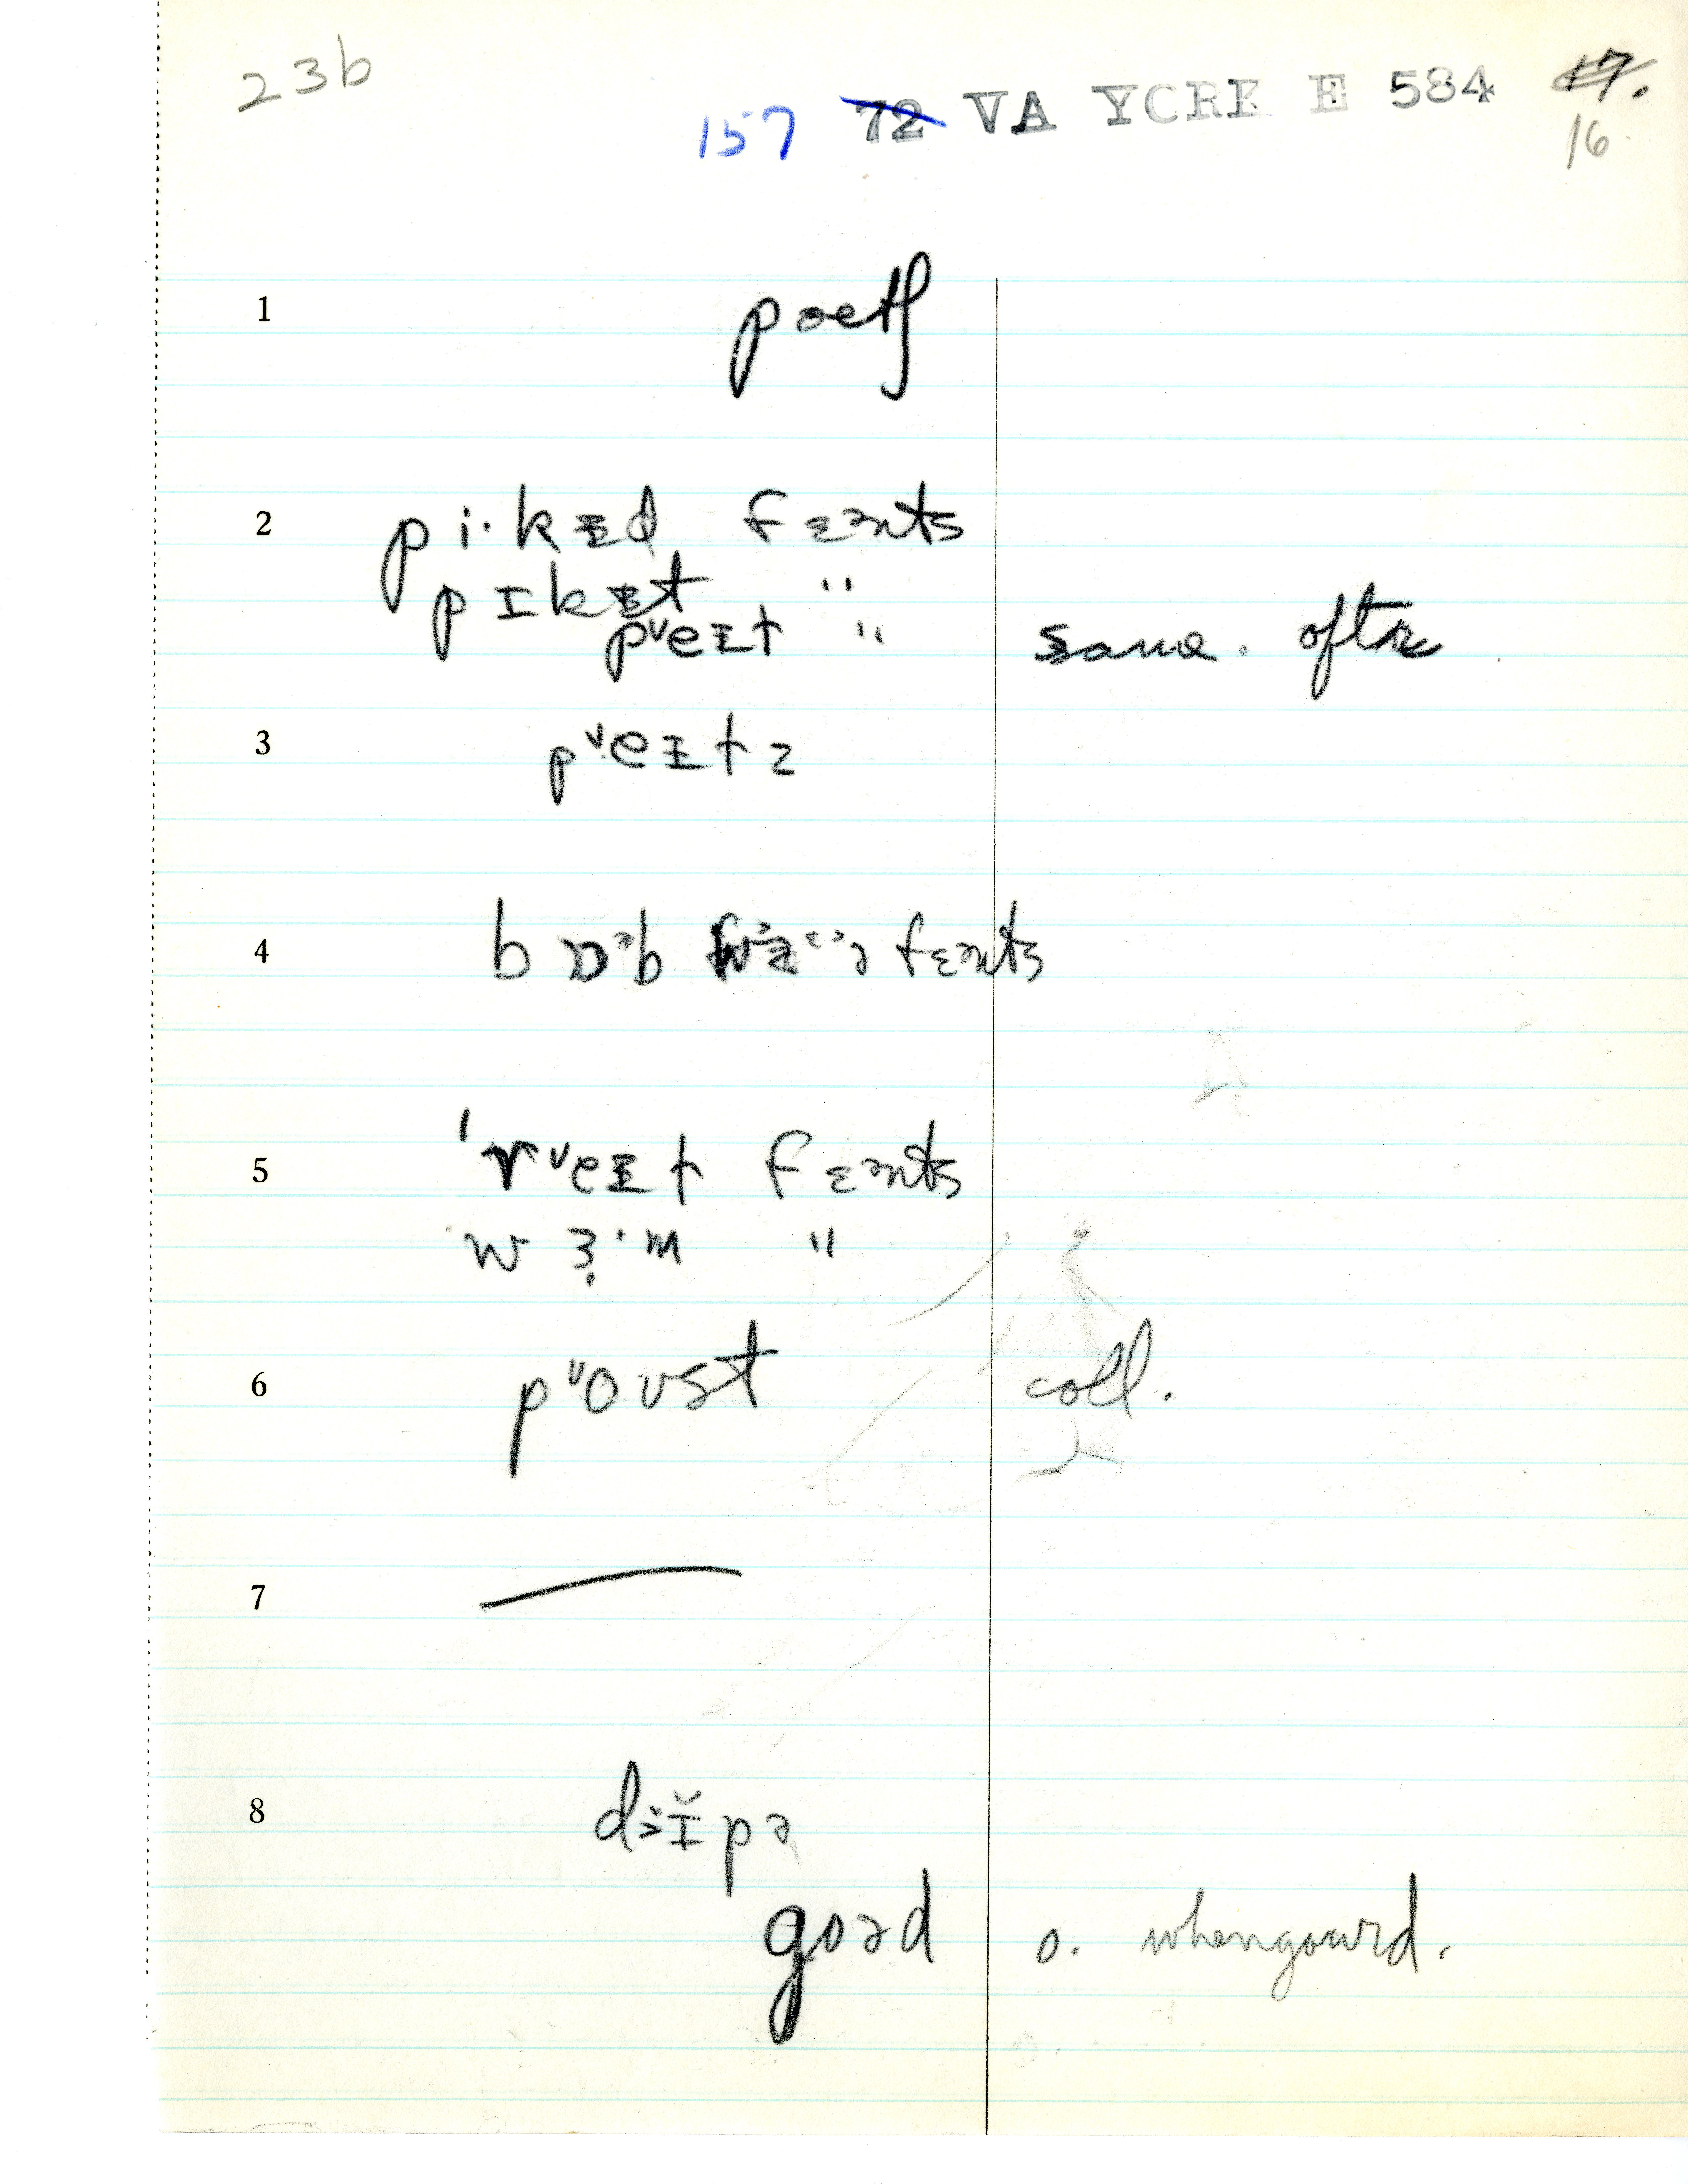 23b
157 72 VA YORK E 584 17.
16
1 poətʃ
2 pi·kᵻd fɛənts
pɪkᵻt "
pᵛeɪt " same. often
3 pᵛeɪtz
4 bɒᵊb fɛənts
5 ˈrᵛeɪt fɛənts
wɜ·m "
6 pᵛoʊst coll.
7 —
8 džɪ̆pə
goəd o. whengourd.